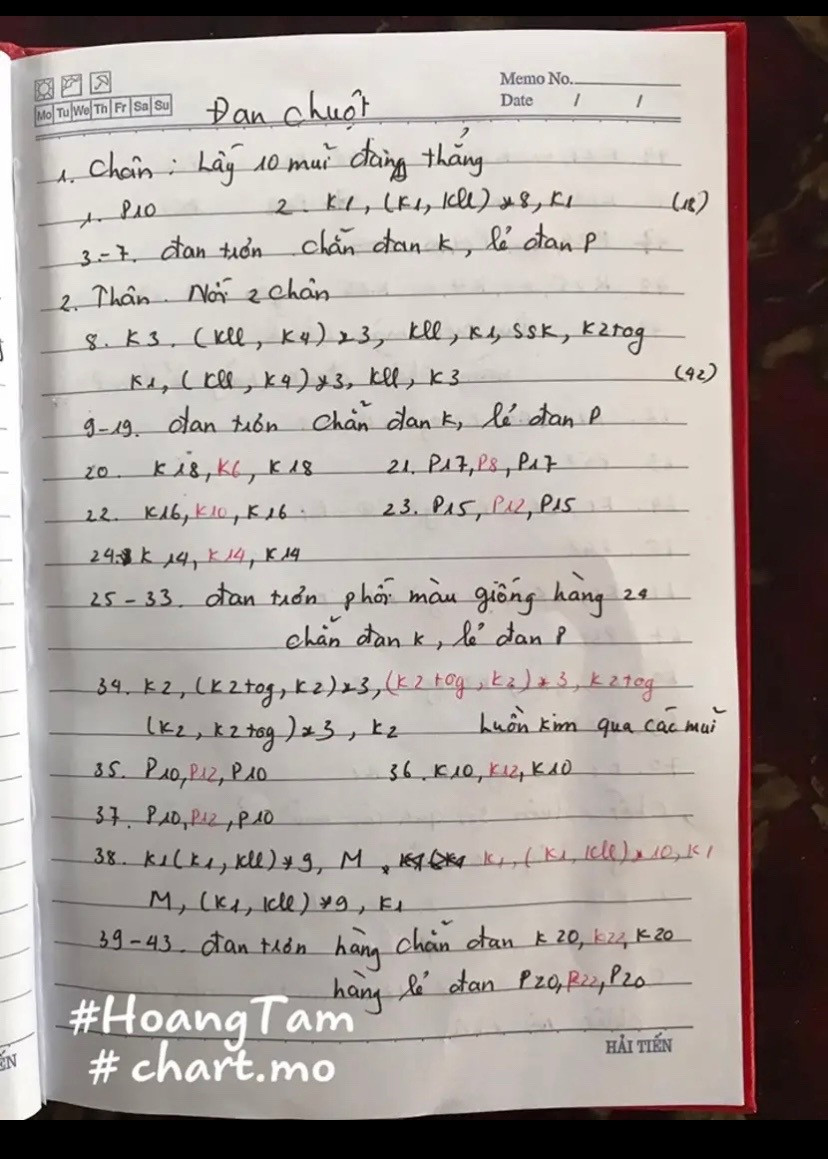 Memo No.
Mo Tu We Th Fr Sa Su
Date / /
Đan chuột
1. Chân : Lấy 10 mũi dạng thẳng
1. P10 2. K1, (K1, Kll) * 8, K1 (18)
3-7. đan trơn chẵn đan K, lẻ đan P
2. Thân. Nối 2 chân
8. K3. (Kll, K4) x3, Kll, K1, SSK, K2tog
K1, (Kll, K4) *3, Kll, K3 (42)
9-19. đan trơn chẵn đan K, lẻ đan P
20. K18, K6, K18 21. P17, P8, P17
22. K16, K10, K16. 23. P15, P12, P15
24. K14, K14, K14
25-33. đan trơn phối màu giống hàng 24
chẵn đan K, lẻ đan P
34. K2, (K2tog, K2) x3, (K2tog, K2) * 3, K2tog
(K2, K2tog) *3, K2 Luồn kim qua các mũi
35. P10, P12, P10 36. K10, K12, K10
37. P10, P12, P10
38. K1(K1, Kll) * 9, M, K1, (K1, Kll) * 10, K1
M, (K1, Kll) *9, K1
39-43. đan trơn hàng chẵn đan K20, K22, K20
hàng lẻ đan P20, P22, P20
#HoangTam
# chart.mo
HẢI TIẾN